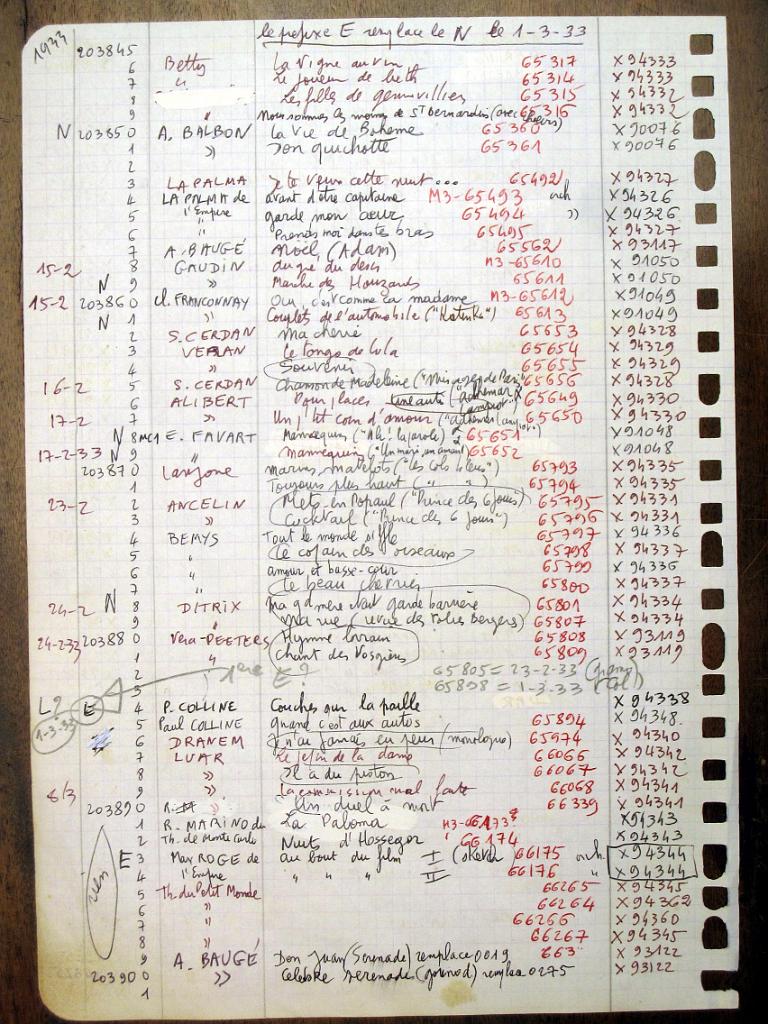 1933 le prefixe E remplace le N le 1-3-33
203845
6 Betty La Vigne au vin 65317 X94333
7 " Le joueur de luth 65314 X94333
8 Les filles de gennevilliers 65315 X94332
9 " Nous sommes les moines de St Bernardin (avec chœurs) 65316 X94332
N 203850 A. BALBON La Vie de Boheme 65360 X90076
1 " Don quichotte 65361 X90076
2
3 LA PALMA Je te veux cette nuit... 65492 X94327
4 LA PALMA de avant d'être capitaine M3-65493 orch X94326
5 l'Empire garde mon cœur 65494 " X94326
6 " Prends moi dans tes bras 65495 X94327
7 A. BAUGÉ Noël (Adam) 65562 X93117
15-2 8 GAUDIN duo du desert M3-65610 X91050
N 9 " Marche des Houzards 65611 X91050
15-2 203860 Cl. FRANCONNAY Oui, c'est comme ça madame M3-65612 X91049
N 1 " Couplets de l'automobile ("Katinka") 65613 X91049
2 S. CERDAN Ma cherie 65653 X94328
3 VERLAN Le tango de Lola 65654 X94329
4 " Souvenir 65655 X94329
16-2 5 S. CERDAN Chanson de Madeleine 65656 X94328
6 ALIBERT Pour placer 65649 X94330
17-2 7 " Un p'tit coin d'amour ("Adhemar Lampiot") 65650 X94330
N 8 MC1 E. FAVART Mannequins ("Ah! la parole) 65651 X91048
17-2-33 N 9 " mannequins 65652 X91048
203870 Larzone marins, matelots ("les Cols bleus") 65793 X94335
1 Toujours plus haut (" ") 65794 X94335
23-2 2 ANCELIN Mets-en Popaul ("Prince des 6 jours) 65795 X94331
3 " Cocktail ("Prince des 6 jours") 65796 X94331
4 BEMYS Tout le monde siffle 65797 X94336
5 " Le copain des oiseaux 65798 X94337
6 " amour et basse-cour 65799 X94336
7 " Le beau chevrier 65800 X94337
24-2 N 8 DITRIX Ma grd mère était garde barrière 65801 X94334
9 Ma rue (revue des Folies Bergers) 65807 X94334
24-2-33 203880 Vera-PEETERS Hymne lorrain 65808 X93119
1 " Chant des Vosgiens 65809 X93119
2 1ere E? 65805 = 23-2-33 (gramo
3 65898 = 1-3-33 (Col)
L? E 4 P. COLLINE Couchés sur la paille X94338
1-3-33 5 Paul COLLINE quand c'est aux autos 65894 X94348
6 DRANEM Je n'ai jamais eu peur (monologue) 65974 X94340
7 LUAR Le jupin de la dame 66066 X94342
8 " Il a du piston 66067 X94342
8/3 9 " La commission mal faite 66068 X94341
203890 " Un duel à mort 66339 X94341
1 R. MARINO du La Paloma M3-66173 X94343
2 Th. de Monte Carlo Nuits d'Hossegor " 66174 X94343
E 3 Max ROGE de au bout du film I (sketch) 66175 orch. X94344
rien 4 l'Empire " " " II 66176 " X94344
5 Th. du Petit Monde 66265 X94345
6 " 66264 X94362
7 " 66266 X94360
8 " 66267 X94345
9 A. BAUGÉ Don Juan (Serenade) remplace 0019 663 X93122
203900 " Celebre serenade (gounod) remplace 0275 X93122
1